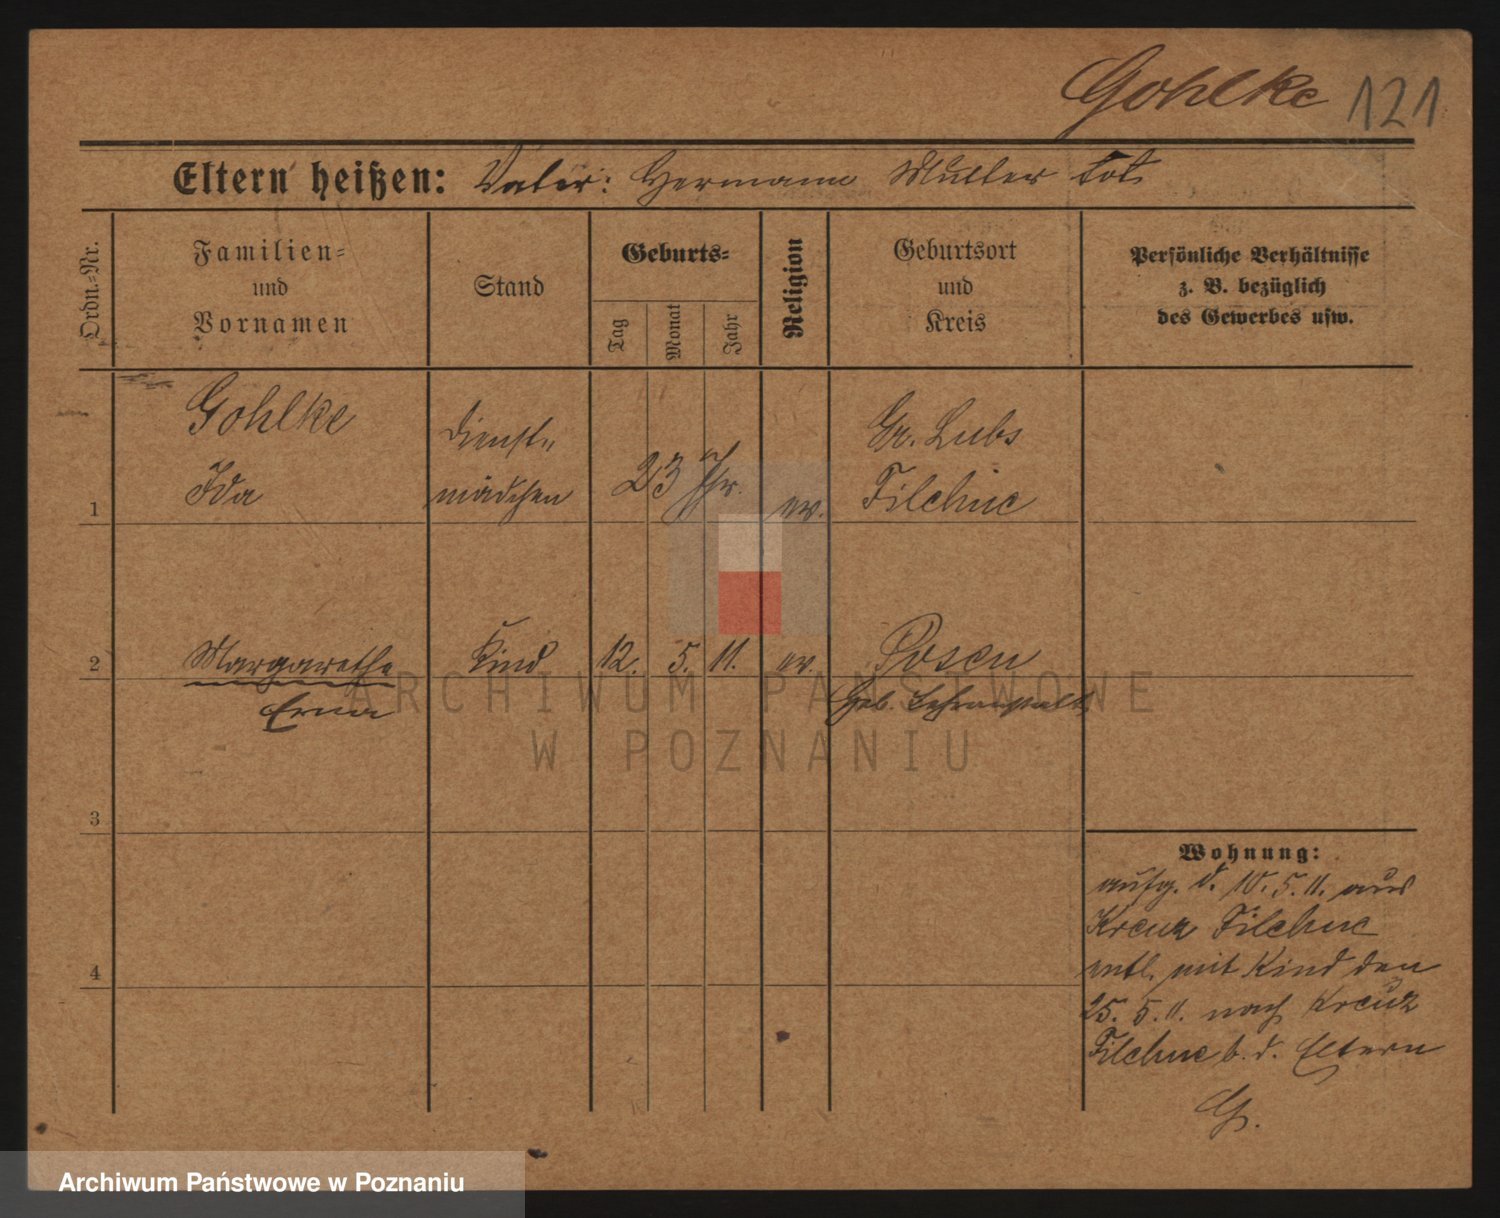 Gohlke 121
Eltern heißen: Vater: Hermann Mutter tot
Ordn.-Nr.
Familien-
und
Vornamen
Stand
Geburts-
Tag
Monat
Jahr
Religion
Geburtsort
und
Kreis
Persönliche Verhältnisse
z. B. bezüglich
des Gewerbes usw.
1
Gohlke
Ida
Dienst-
mädchen
23 Jhr.
ev.
Gr. Lubs
Filehne
2
Margarethe
Erna
Kind
12. 5. 11.
ev.
Posen
Geb. Lehranstalt
3
4
Wohnung:
aufg. d. 10. 5. 11. aus
Kreuz Filehne
entl. mit Kind den
25. 5. 11. nach Kreuz
Filehne b. d. Eltern
G.
ARCHIWUM PAŃSTWOWE
W POZNANIU
Archiwum Państwowe w Poznaniu